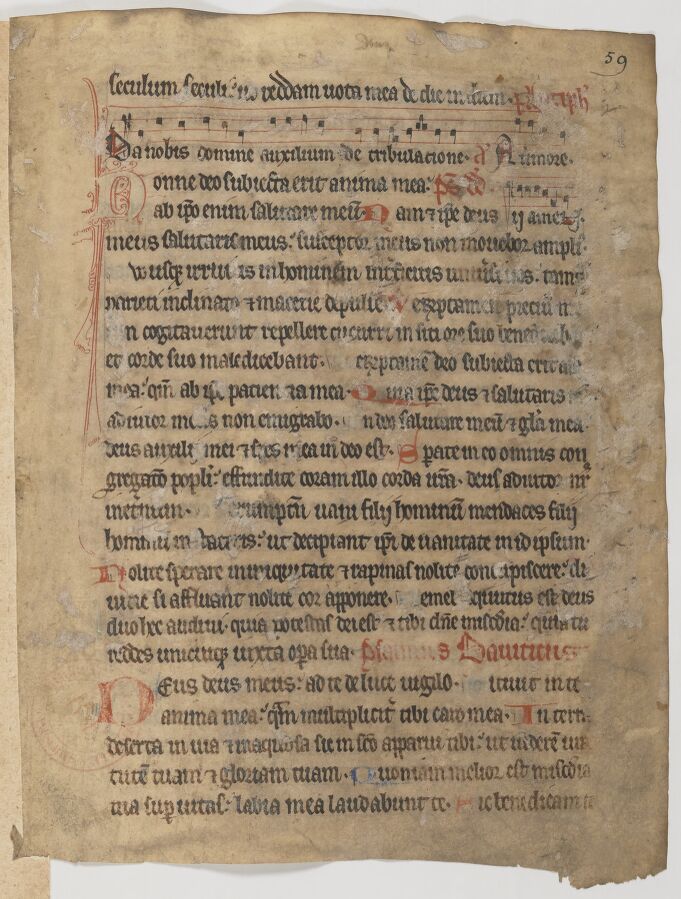 59
seculum seculi: ut reddam uota mea de die in diem.
Da nobis domine auxilium de tribulacione. a͞ A timore.
onne deo subiecta erit anima mea: ps dd
ab ipo enim salutare meū. Nam ⁊ ipe deus
meus salutaris meus: susceptor meus non mouebor ampli⁹.
usq; irruitis in hominem interficitis
parieti inclinato ⁊ macerie depulse Veruptamen preciū
cogitauerunt repellere cucurri in siti ore suo
et corde suo maledicebant. ueruptamē deo subiecta
mea: qm̄ ab ipo paciencia mea. Quia ipe deus ⁊ salutaris
adiutor meus non emigrabo. In deo salutare meū ⁊ gl̄a mea
deus auxilij mei ⁊ spes mea in deo est. Sperate in eo omnis con
gregatō popli: effundite coram illo corda ur̄a. deus adiutor nr̄
in eternum. Verumptn̄ uani filij hominū mendaces filij
hominū in stateris: ut decipiant ipi de uanitate in id ipsum.
Nolite sperare in iniquitate ⁊ rapinas nolite concupiscere: di
uicie si affluant nolite cor apponere. Semel locutus est deus
duo hec audiui. quia potestas dei est ⁊ tibi dn̄e mīscdia: quia tu
reddes unicuiq; iuxta opa sua. psalmus Dauiticus
DEus deus meus: ad te de luce uigilo. Sitiuit in te
anima mea: q̄m multipliciť tibi caro mea. In terra
deserta in uia ⁊ inaquosa sic in sc̄o apparui tibi: ut uiderē uir
tutē tuam ⁊ gloriam tuam. Quoniam melior est mīscdia
tua sup uitas: labia mea laudabunt te. Sic benedicam te